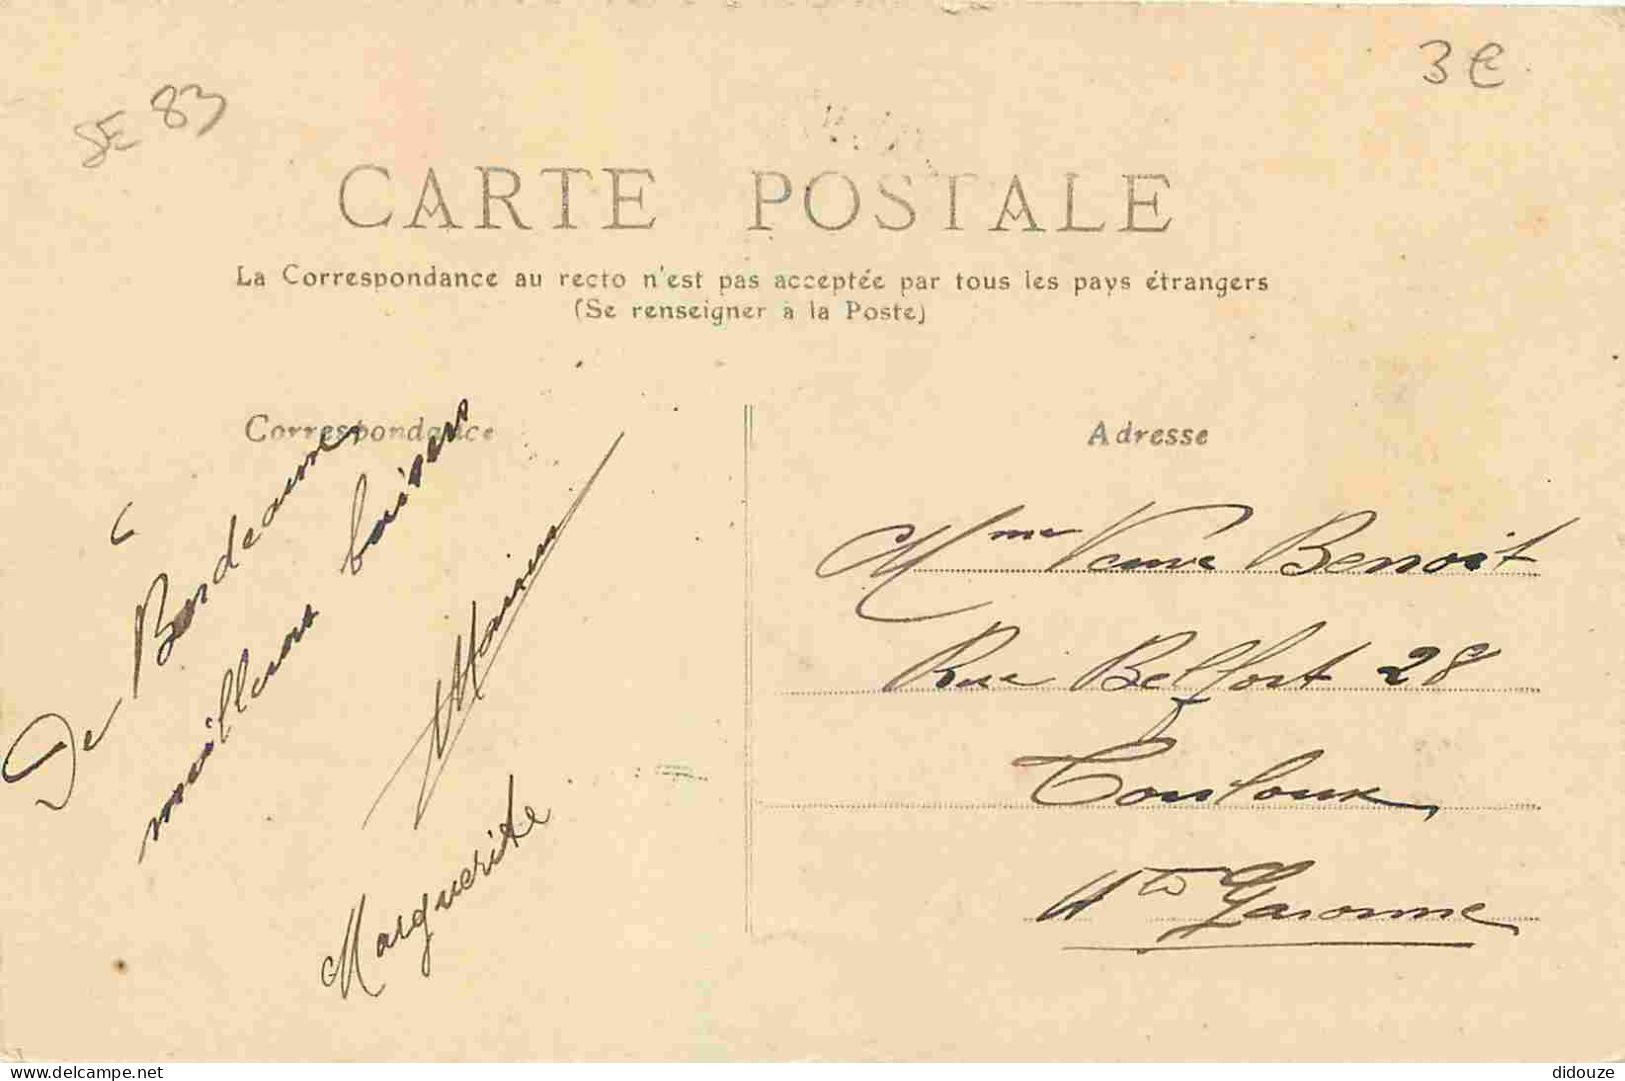 SE 83
3 €
CARTE POSTALE
La Correspondance au recto n'est pas acceptée par tous les pays étrangers
(Se renseigner à la Poste)
Correspondance
De Bordeaux
meilleurs baisers
Marius
Marguerite
Adresse
Mme Veuve Benoit
Rue Belfort 28
Toulouse
Hte Garonne
www.delcampe.net
didouze